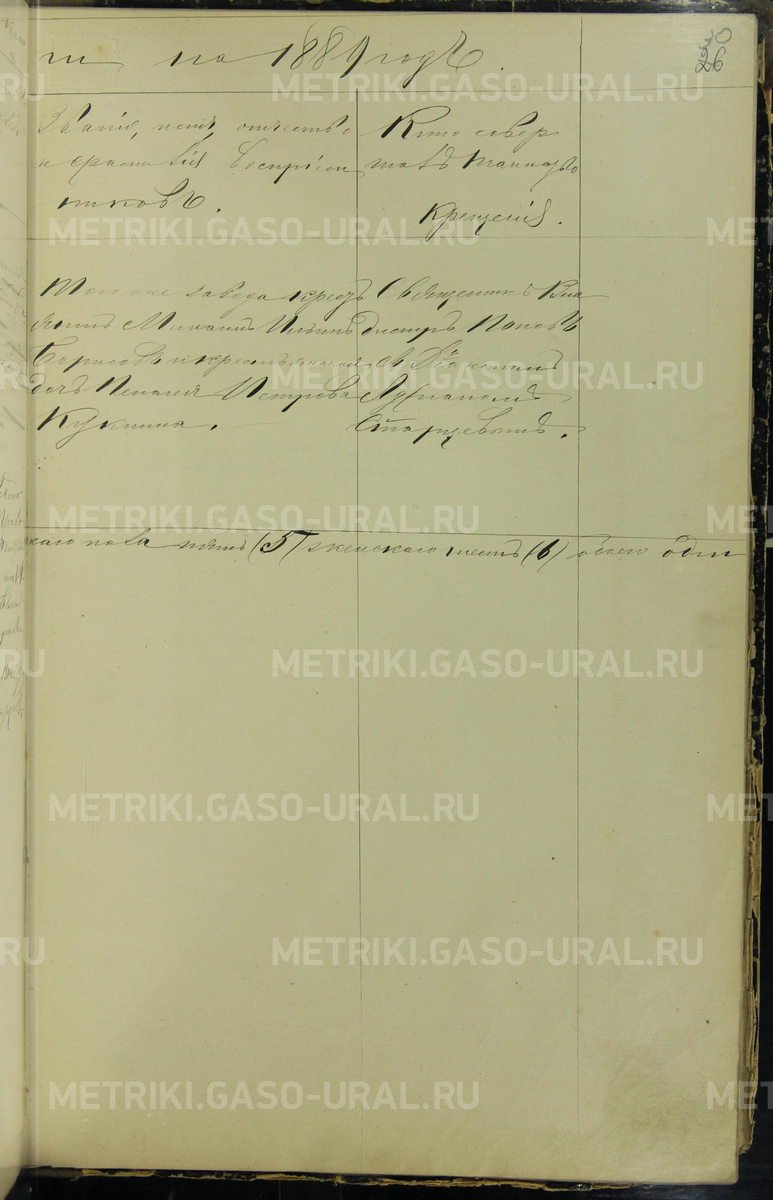 на 1889 годъ.
26
Званіе, имя, отчество
и фамилія воспріем
никовъ.
Кто совер
шалъ таинство
крещенія.
Того же завода крест
Михаилъ Ильинъ
Борисовъ и крестьянская
дочь Пелагея Петрова
Кукина.
Священникъ
Поповъ
съ Діакономъ
Старцевымъ.
пола пять (5) женскаго шесть (6) обоего один
METRIKI.GASO-URAL.RU